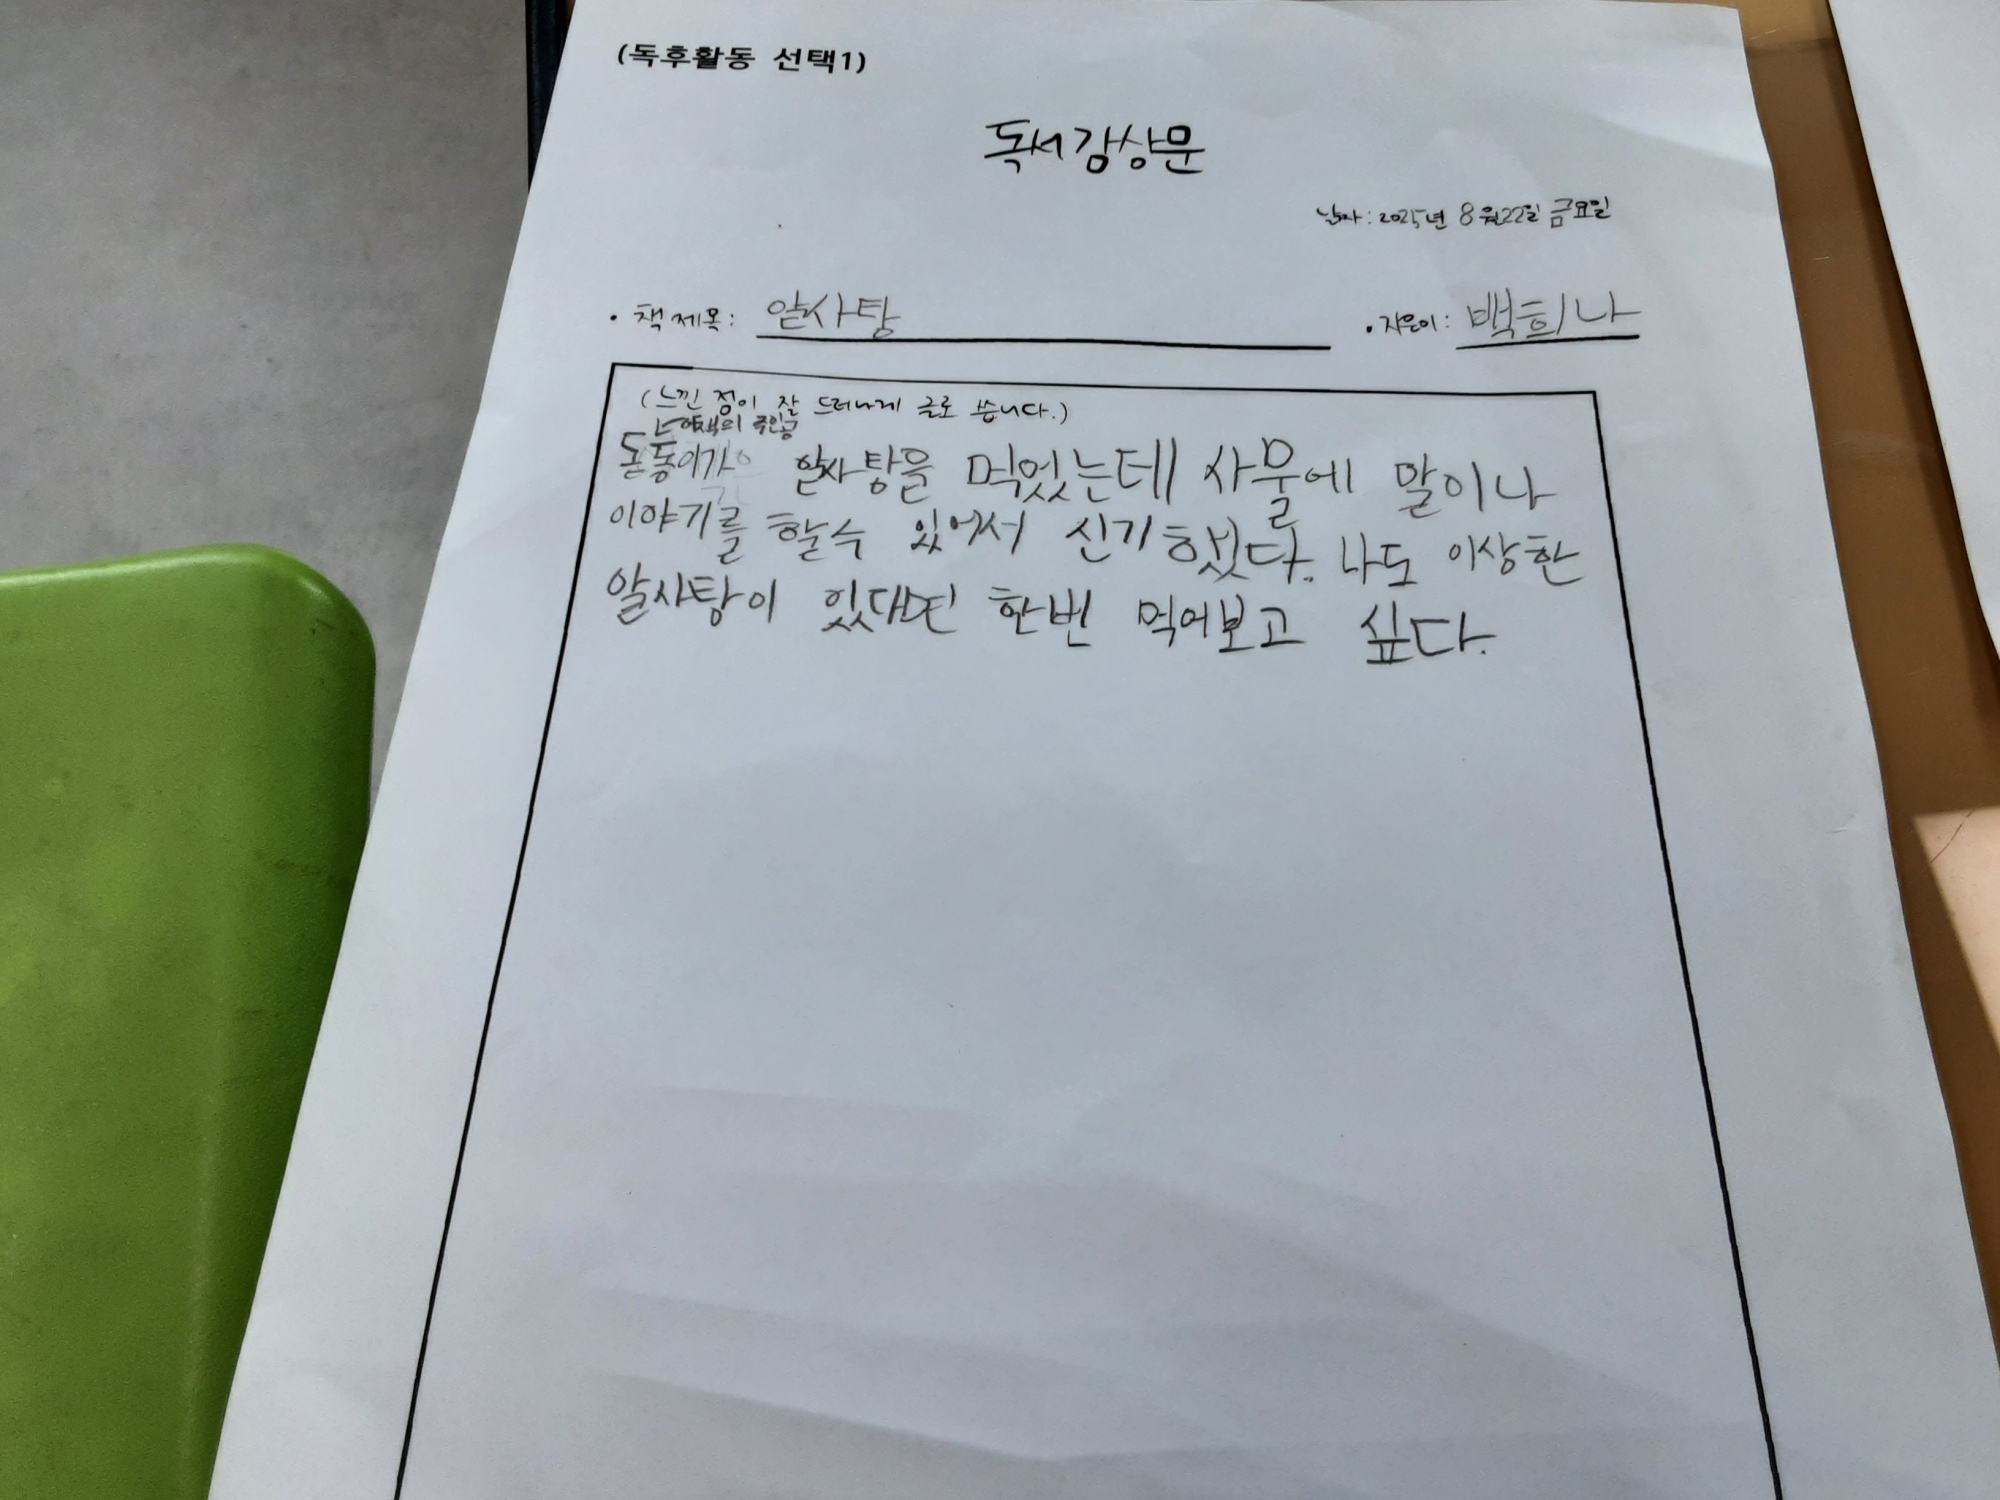 (독후활동 선택1)
독서감상문
날짜: 2025년 8월 22일 금요일
• 책 제목: 알사탕
• 지은이: 백희나
(느낀 점이 잘 드러나게 글로 씁니다.)
책의 주인공
동동이가 알사탕을 먹었는데 사물에 말이나
이야기를 할수 있어서 신기했다. 나도 이상한
알사탕이 있다면 한번 먹어보고 싶다.